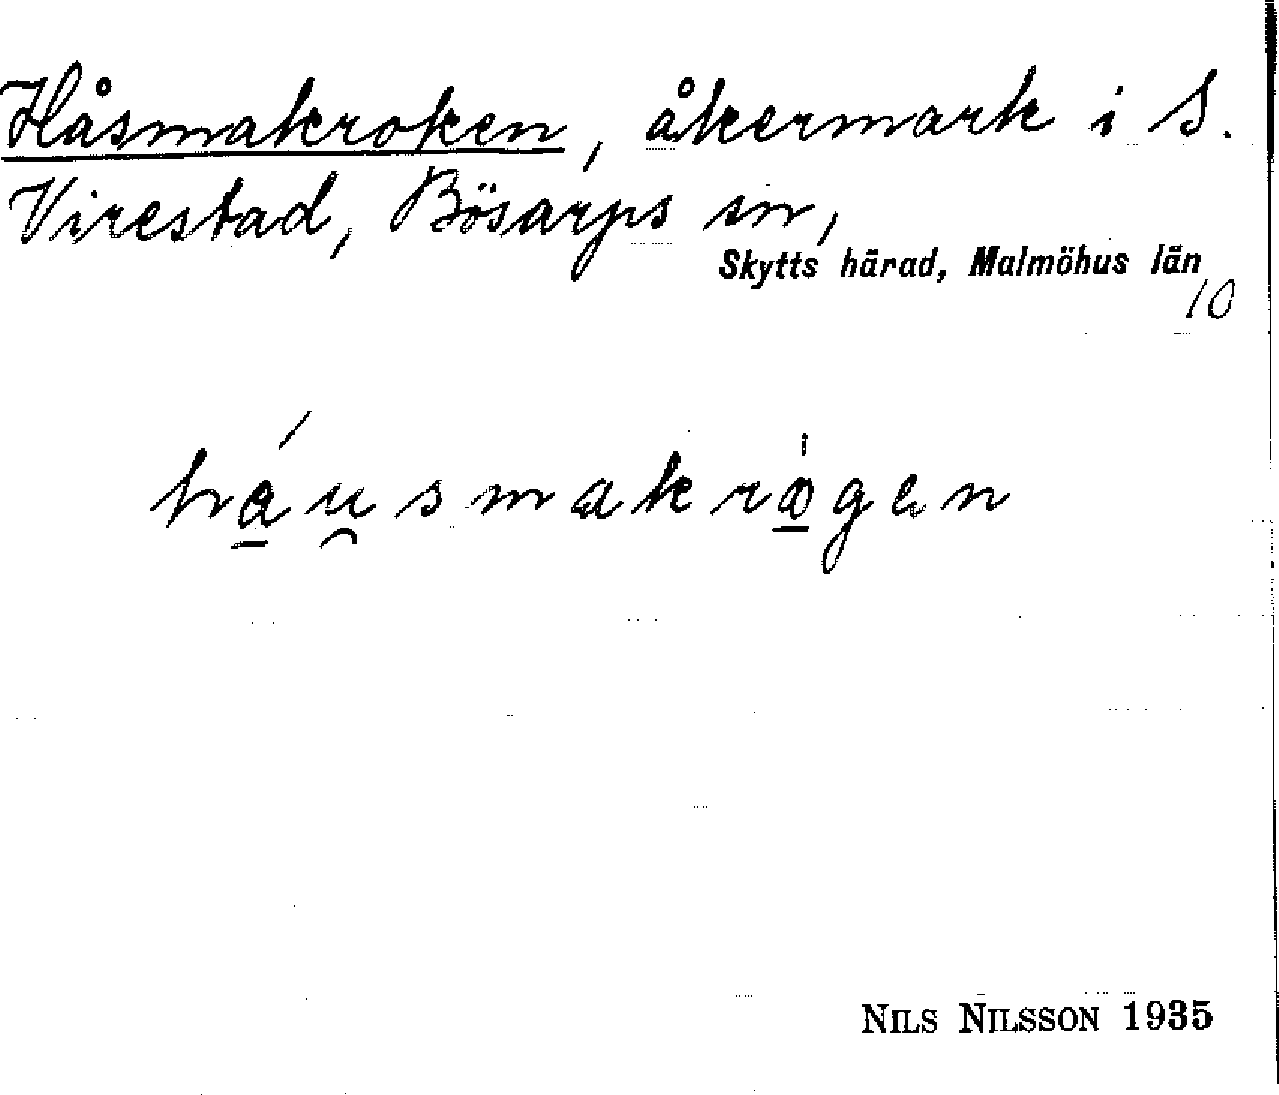 Håsmakroken, åkermark i S.
Virestad, Bösarps sn,
Skytts härad, Malmöhus län
10
háu̯smakrògen
NILS NILSSON 1935